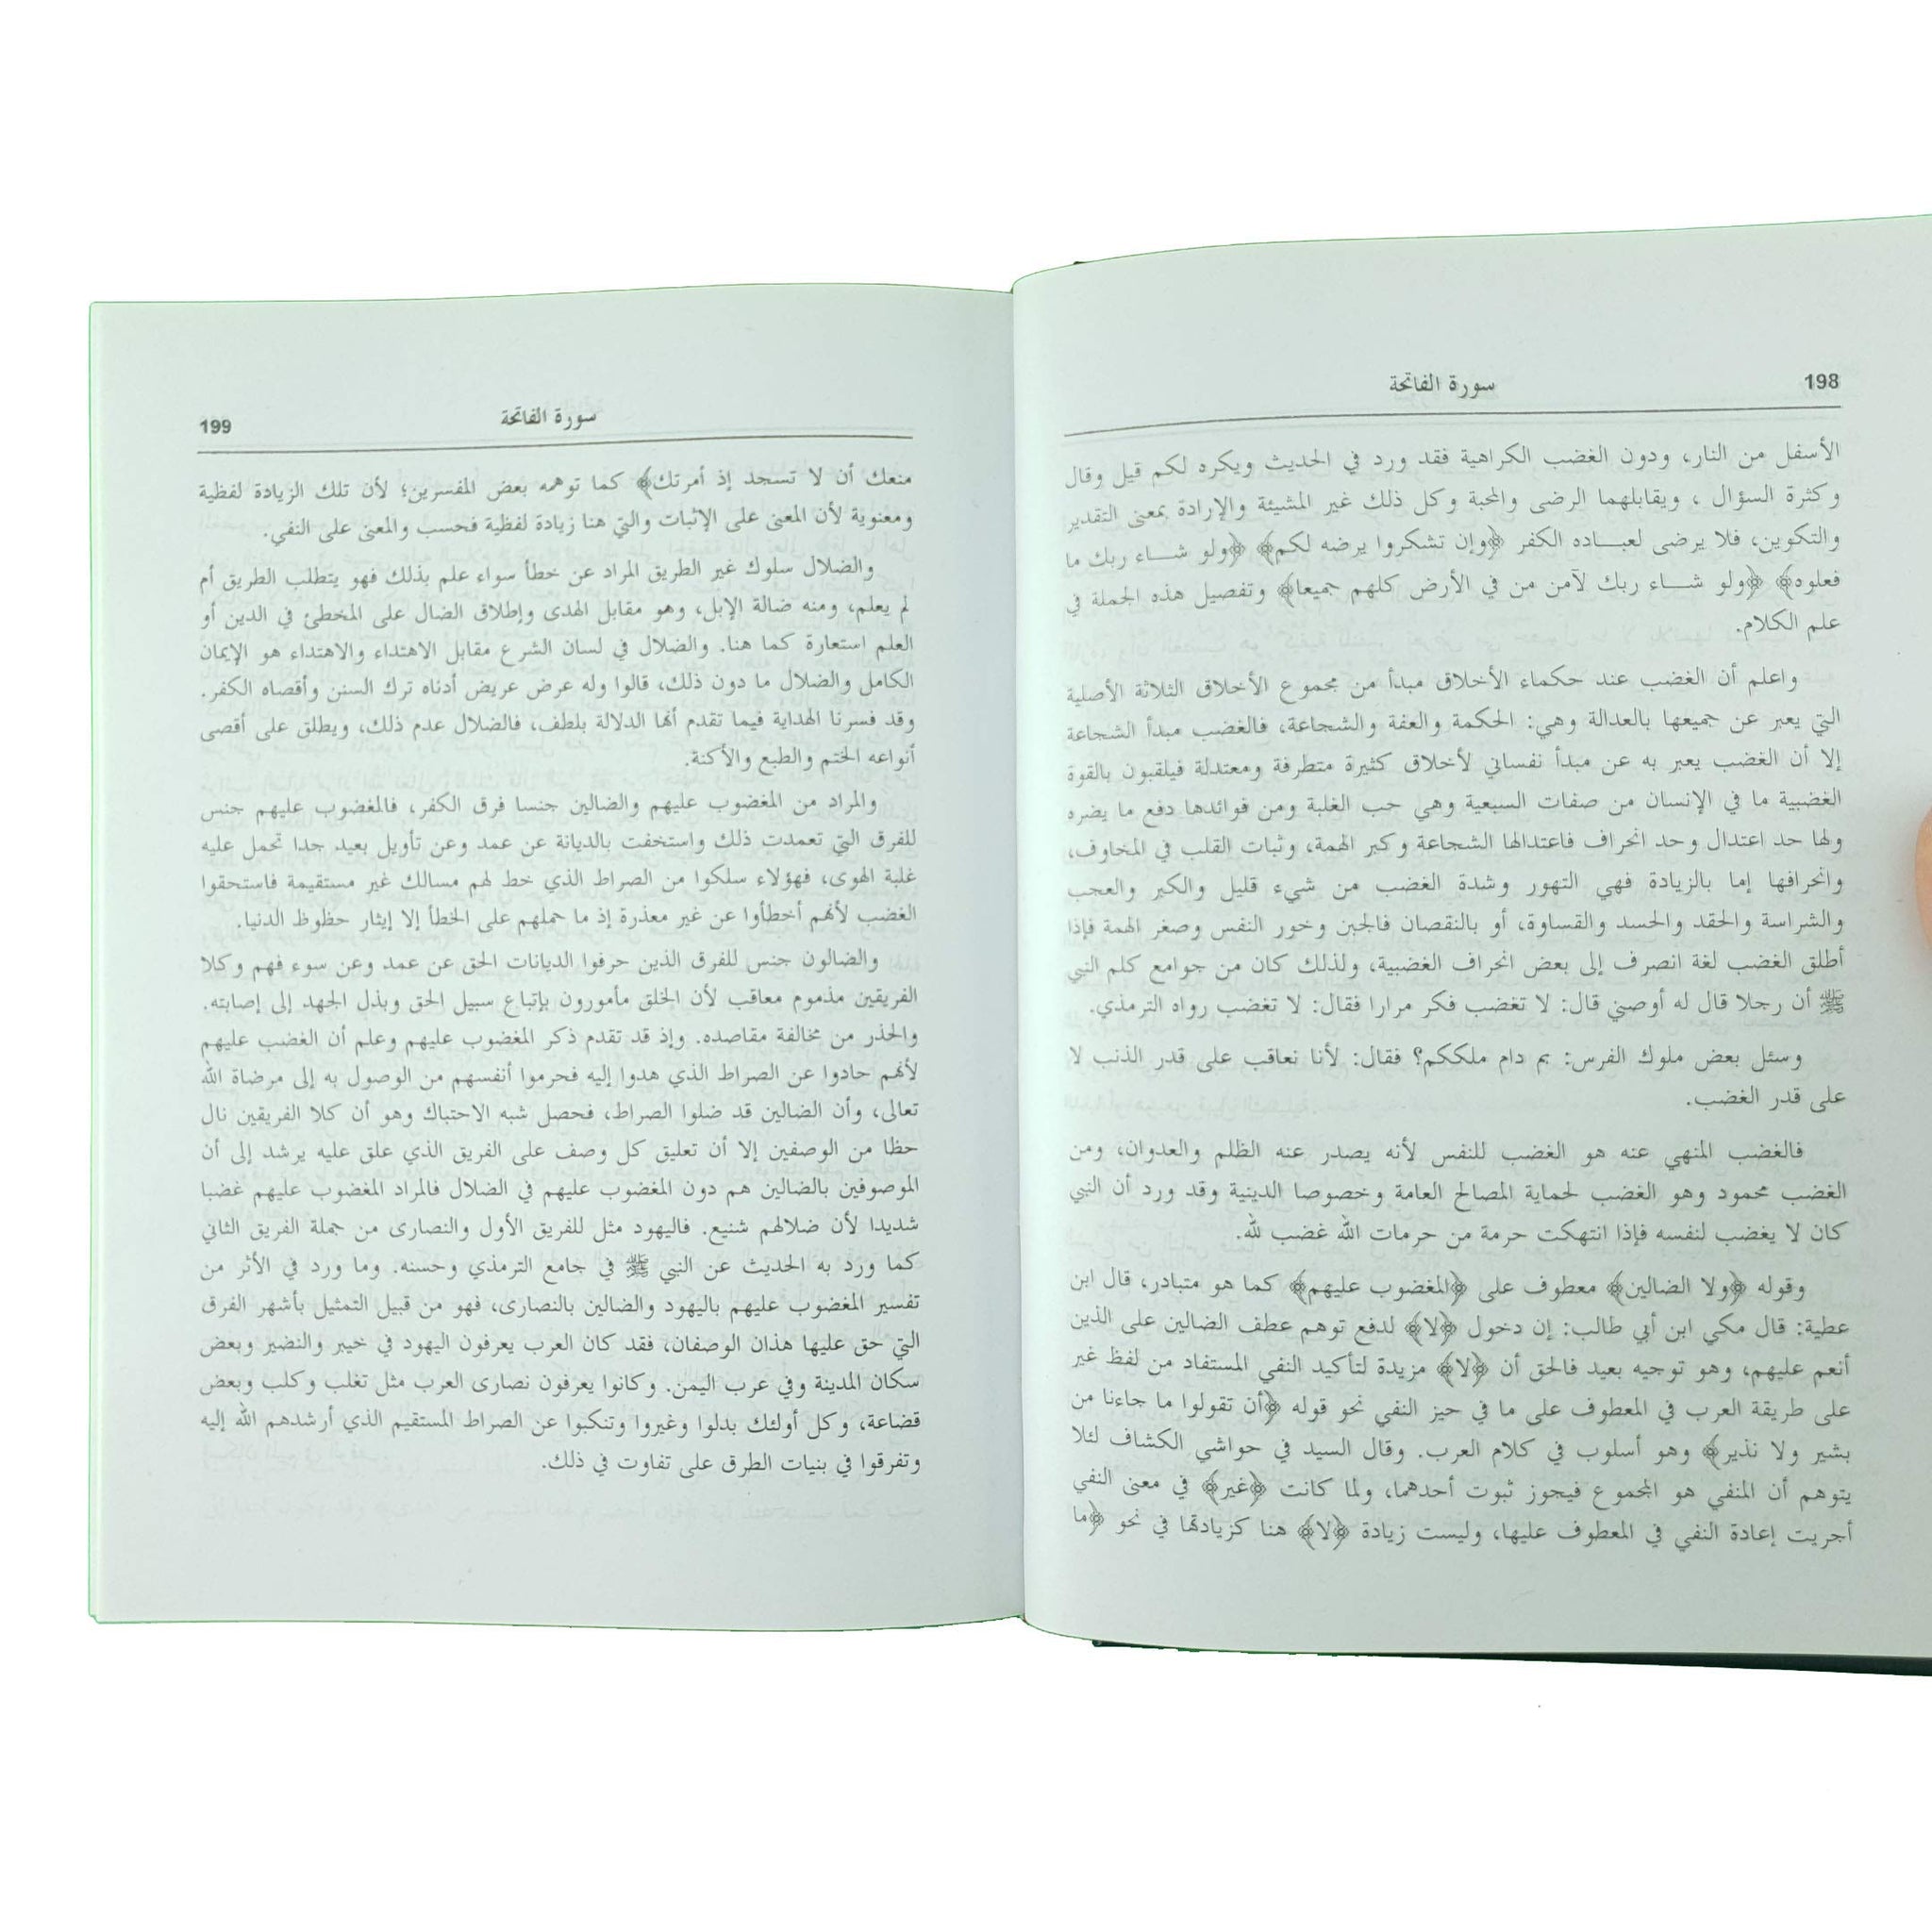 198
سورة الفاتحة
الأسفل من النار، ودون الغضب الكراهية فقد ورد في الحديث ويكره لكم قيل وقال
وكثرة السؤال ، ويقابلهما الرضى والمحبة وكل ذلك غير المشيئة والإرادة بمعنى التقدير
والتكوين، فلا يرضى لعباده الكفر ﴿وإن تشكروا يرضه لكم﴾ ﴿ولو شاء ربك ما
فعلوه﴾ ﴿ولو شاء ربك لآمن من في الأرض كلهم جميعا﴾ وتفصيل هذه الجملة في
علم الكلام.
واعلم أن الغضب عند حكماء الأخلاق مبدأ من مجموع الأخلاق الثلاثة الأصلية
التي يعبر عن جميعها بالعدالة وهي: الحكمة والعفة والشجاعة، فالغضب مبدأ الشجاعة
إلا أن الغضب يعبر به عن مبدأ نفساني لأخلاق كثيرة متطرفة ومعتدلة فيلقبون بالقوة
الغضبية ما في الإنسان من صفات السبعية وهي حب الغلبة ومن فوائدها دفع ما يضره
ولها حد اعتدال وحد انحراف فاعتدالها الشجاعة وكبر الهمة، وثبات القلب في المخاوف،
وانحرافها إما بالزيادة فهي التهور وشدة الغضب من شيء قليل والكبر والعجب
والشراسة والحقد والحسد والقساوة، أو بالنقصان فالجبن وخور النفس وصغر الهمة فإذا
أطلق الغضب لغة انصرف إلى بعض انحراف الغضبية، ولذلك كان من جوامع كلم النبي
ﷺ أن رجلا قال له أوصني قال: لا تغضب فكر مرارا فقال: لا تغضب رواه الترمذي.
وسئل بعض ملوك الفرس: بم دام ملككم؟ فقال: لأنا نعاقب على قدر الذنب لا
على قدر الغضب.
فالغضب المنهي عنه هو الغضب للنفس لأنه يصدر عنه الظلم والعدوان، ومن
الغضب محمود وهو الغضب لحماية المصالح العامة وخصوصا الدينية وقد ورد أن النبي
كان لا يغضب لنفسه فإذا انتهكت حرمة من حرمات الله غضب لله.
وقوله ﴿ولا الضالين﴾ معطوف على ﴿المغضوب عليهم﴾ كما هو متبادر، قال ابن
عطية: قال مكي ابن أبي طالب: إن دخول ﴿لا﴾ لدفع توهم عطف الضالين على الذين
أنعم عليهم، وهو توجيه بعيد فالحق أن ﴿لا﴾ مزيدة لتأكيد النفي المستفاد من لفظ غير
على طريقة العرب في المعطوف على ما في حيز النفي نحو قوله ﴿أن تقولوا ما جاءنا من
بشير ولا نذير﴾ وهو أسلوب في كلام العرب. وقال السيد في حواشي الكشاف لئلا
يتوهم أن المنفي هو المجموع فيجوز ثبوت أحدهما، ولما كانت ﴿غير﴾ في معنى النفي
أجريت إعادة النفي في المعطوف عليها، وليست زيادة ﴿لا﴾ هنا كزيادتها في نحو ﴿ما
سورة الفاتحة
199
منعك أن لا تسجد إذ أمرتك﴾ كما توهمه بعض المفسرين؛ لأن تلك الزيادة لفظية
ومعنوية لأن المعنى على الإثبات والتي هنا زيادة لفظية فحسب والمعنى على النفي.
والضلال سلوك غير الطريق المراد عن خطأ سواء علم بذلك فهو يتطلب الطريق أم
لم يعلم، ومنه ضالة الإبل، وهو مقابل الهدى وإطلاق الضال على المخطئ في الدين أو
العلم استعارة كما هنا. والضلال في لسان الشرع مقابل الاهتداء والاهتداء هو الإيمان
الكامل والضلال ما دون ذلك، قالوا وله عرض عريض أدناه ترك السنن وأقصاه الكفر.
وقد فسرنا الهداية فيما تقدم أنها الدلالة بلطف، فالضلال عدم ذلك، ويطلق على أقصى
أنواعه الختم والطبع والأكنة.
والمراد من المغضوب عليهم والضالين جنسا فرق الكفر، فالمغضوب عليهم جنس
للفرق التي تعمدت ذلك واستخفت بالديانة عن عمد وعن تأويل بعيد جدا تحمل عليه
غلبة الهوى، فهؤلاء سلكوا من الصراط الذي خط لهم مسالك غير مستقيمة فاستحقوا
الغضب لأنهم أخطأوا عن غير معذرة إذ ما حملهم على الخطأ إلا إيثار حظوظ الدنيا.
والضالون جنس للفرق الذين حرفوا الديانات الحق عن عمد وعن سوء فهم وكلا
الفريقين مذموم معاقب لأن الخلق مأمورون بإتباع سبيل الحق وبذل الجهد إلى إصابته.
والحذر من مخالفة مقاصده. وإذ قد تقدم ذكر المغضوب عليهم وعلم أن الغضب عليهم
لأنهم حادوا عن الصراط الذي هدوا إليه فحرموا أنفسهم من الوصول به إلى مرضاة الله
تعالى، وأن الضالين قد ضلوا الصراط، فحصل شبه الاحتباك وهو أن كلا الفريقين نال
حظا من الوصفين إلا أن تعليق كل وصف على الفريق الذي علق عليه يرشد إلى أن
الموصوفين بالضالين هم دون المغضوب عليهم في الضلال فالمراد المغضوب عليهم غضبا
شديدا لأن ضلالهم شنيع. فاليهود مثل للفريق الأول والنصارى من جملة الفريق الثاني
كما ورد به الحديث عن النبي ﷺ في جامع الترمذي وحسنه. وما ورد في الأثر من
تفسير المغضوب عليهم باليهود والضالين بالنصارى، فهو من قبيل التمثيل بأشهر الفرق
التي حق عليها هذان الوصفان، فقد كان العرب يعرفون اليهود في خيبر والنضير وبعض
سكان المدينة وفي عرب اليمن. وكانوا يعرفون نصارى العرب مثل تغلب وكلب وبعض
قضاعة، وكل أولئك بدلوا وغيروا وتنكبوا عن الصراط المستقيم الذي أرشدهم الله إليه
وتفرقوا في بنيات الطرق على تفاوت في ذلك.